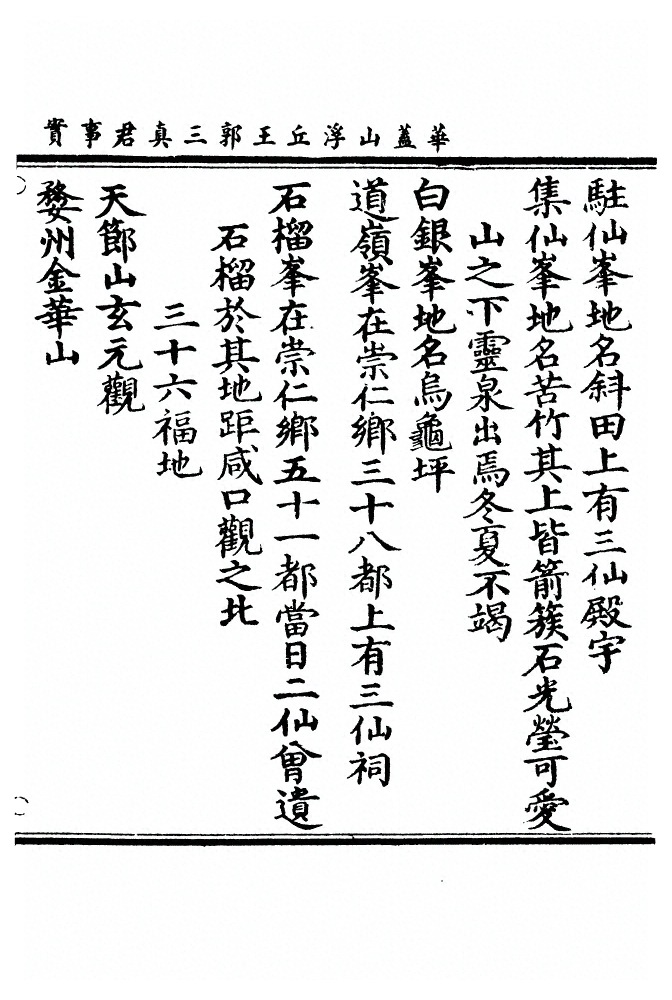 華蓋山浮丘王郭三真君事實
駐仙峯地名斜田上有三仙殿宇
集仙峯地名苦竹其上皆箭簇石光瑩可愛
山之下靈泉出焉冬夏不竭
白銀峯地名烏龜坪
道嶺峯在崇仁鄉三十八都上有三仙祠
石榴峯在崇仁鄉五十一都當日二仙曾遺
石榴於其地距咸口觀之北
三十六福地
天節山玄元觀
婺州金華山